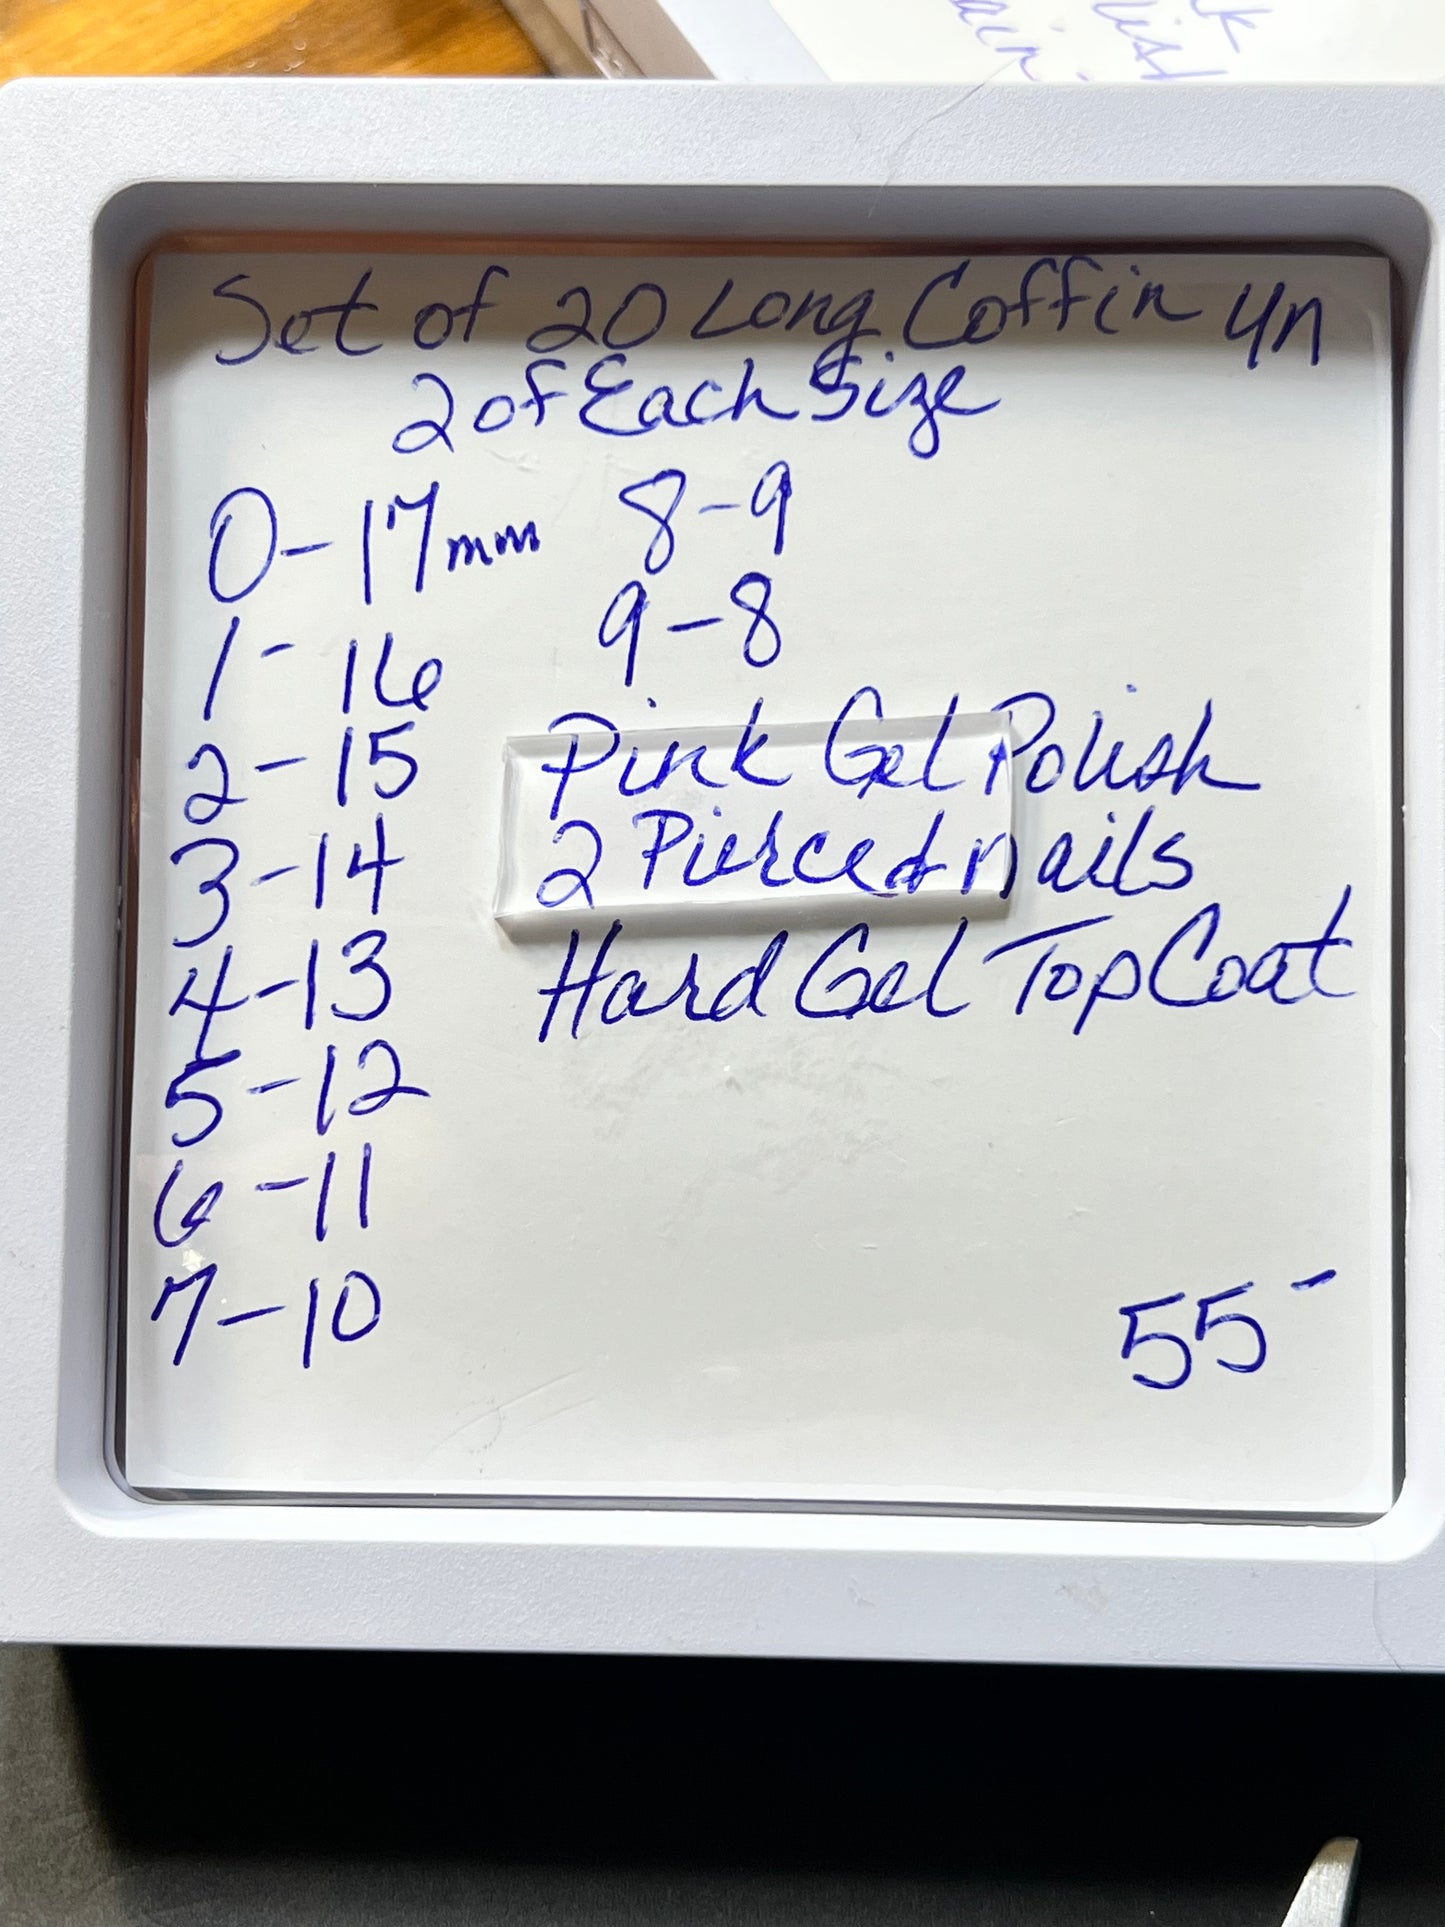 Set of 20 Long Coffin 4n
2 of Each Size
0-17mm
1-16
2-15
3-14
4-13
5-12
6-11
7-10
8-9
9-8
Pink Gel Polish
2 Pierced nails
Hard Gel Top Coat
55-